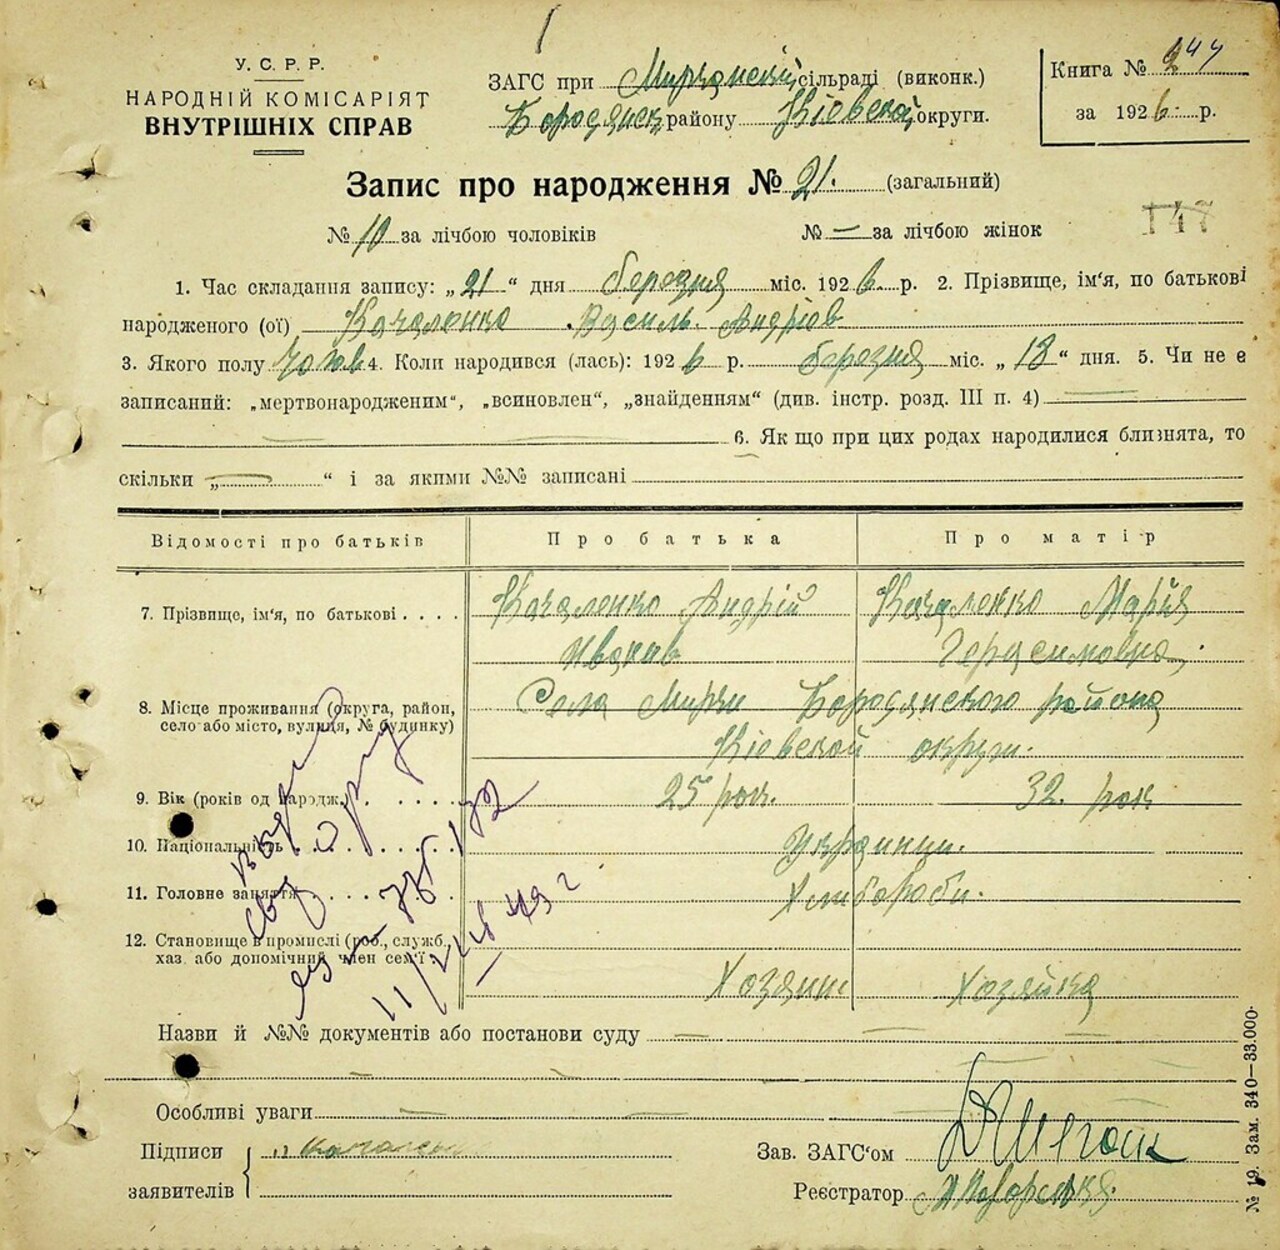 У. С. Р. Р.
НАРОДНІЙ КОМІСАРІЯТ
ВНУТРІШНІХ СПРАВ
ЗАГС при Мирчанскій сільраді (виконк.)
Бородянск району Кіевской округи.
Книга № 244
за 1926 р.
Запис про народження № 21. (загальний)
№ 10 за лічбою чоловіків № — за лічбою жінок
147
1. Час складання запису: „21“ дня березня міс. 1926 р. 2. Прізвище, ім'я, по батькові
народженого (ої) Качаленко Василь Андріів
3. Якого полу чолов 4. Коли народився (лась): 1926 р. березня міс. „18“ дня. 5. Чи не є
записаний: „мертвонародженим“, „всиновлен“, „знайденням“ (див. інстр. розд. III п. 4) —
6. Як що при цих родах народилися близнята, то
скільки „—“ і за якими №№ записані
Відомості про батьків Про батька Про матір
7. Прізвище, ім'я, по батькові . . . . Качаленко Андрій Качаленко Марія
Ивакив Герасимовна,
8. Місце проживання (округа, район, Села Мирчи Бородянского района
село або місто, вулиця, № будинку) Кіевской округи.
9. Вік (років од народж.) . . . . . 25 рок. 32. рок
10. Національність . . . . . . . Украинци.
11. Головне заняття . . . . . . Хлибороби.
12. Становище в промислі (роб., служб.,
хаз. або допомічний член сем'ї . Хозяин Хозяйка
11/
49 г
Назви й №№ документів або постанови суду —
Особливі уваги —
Підписи
заявителів
Зав. ЗАГС'ом
Реєстратор
№ 19. Зам. 340—33.000.